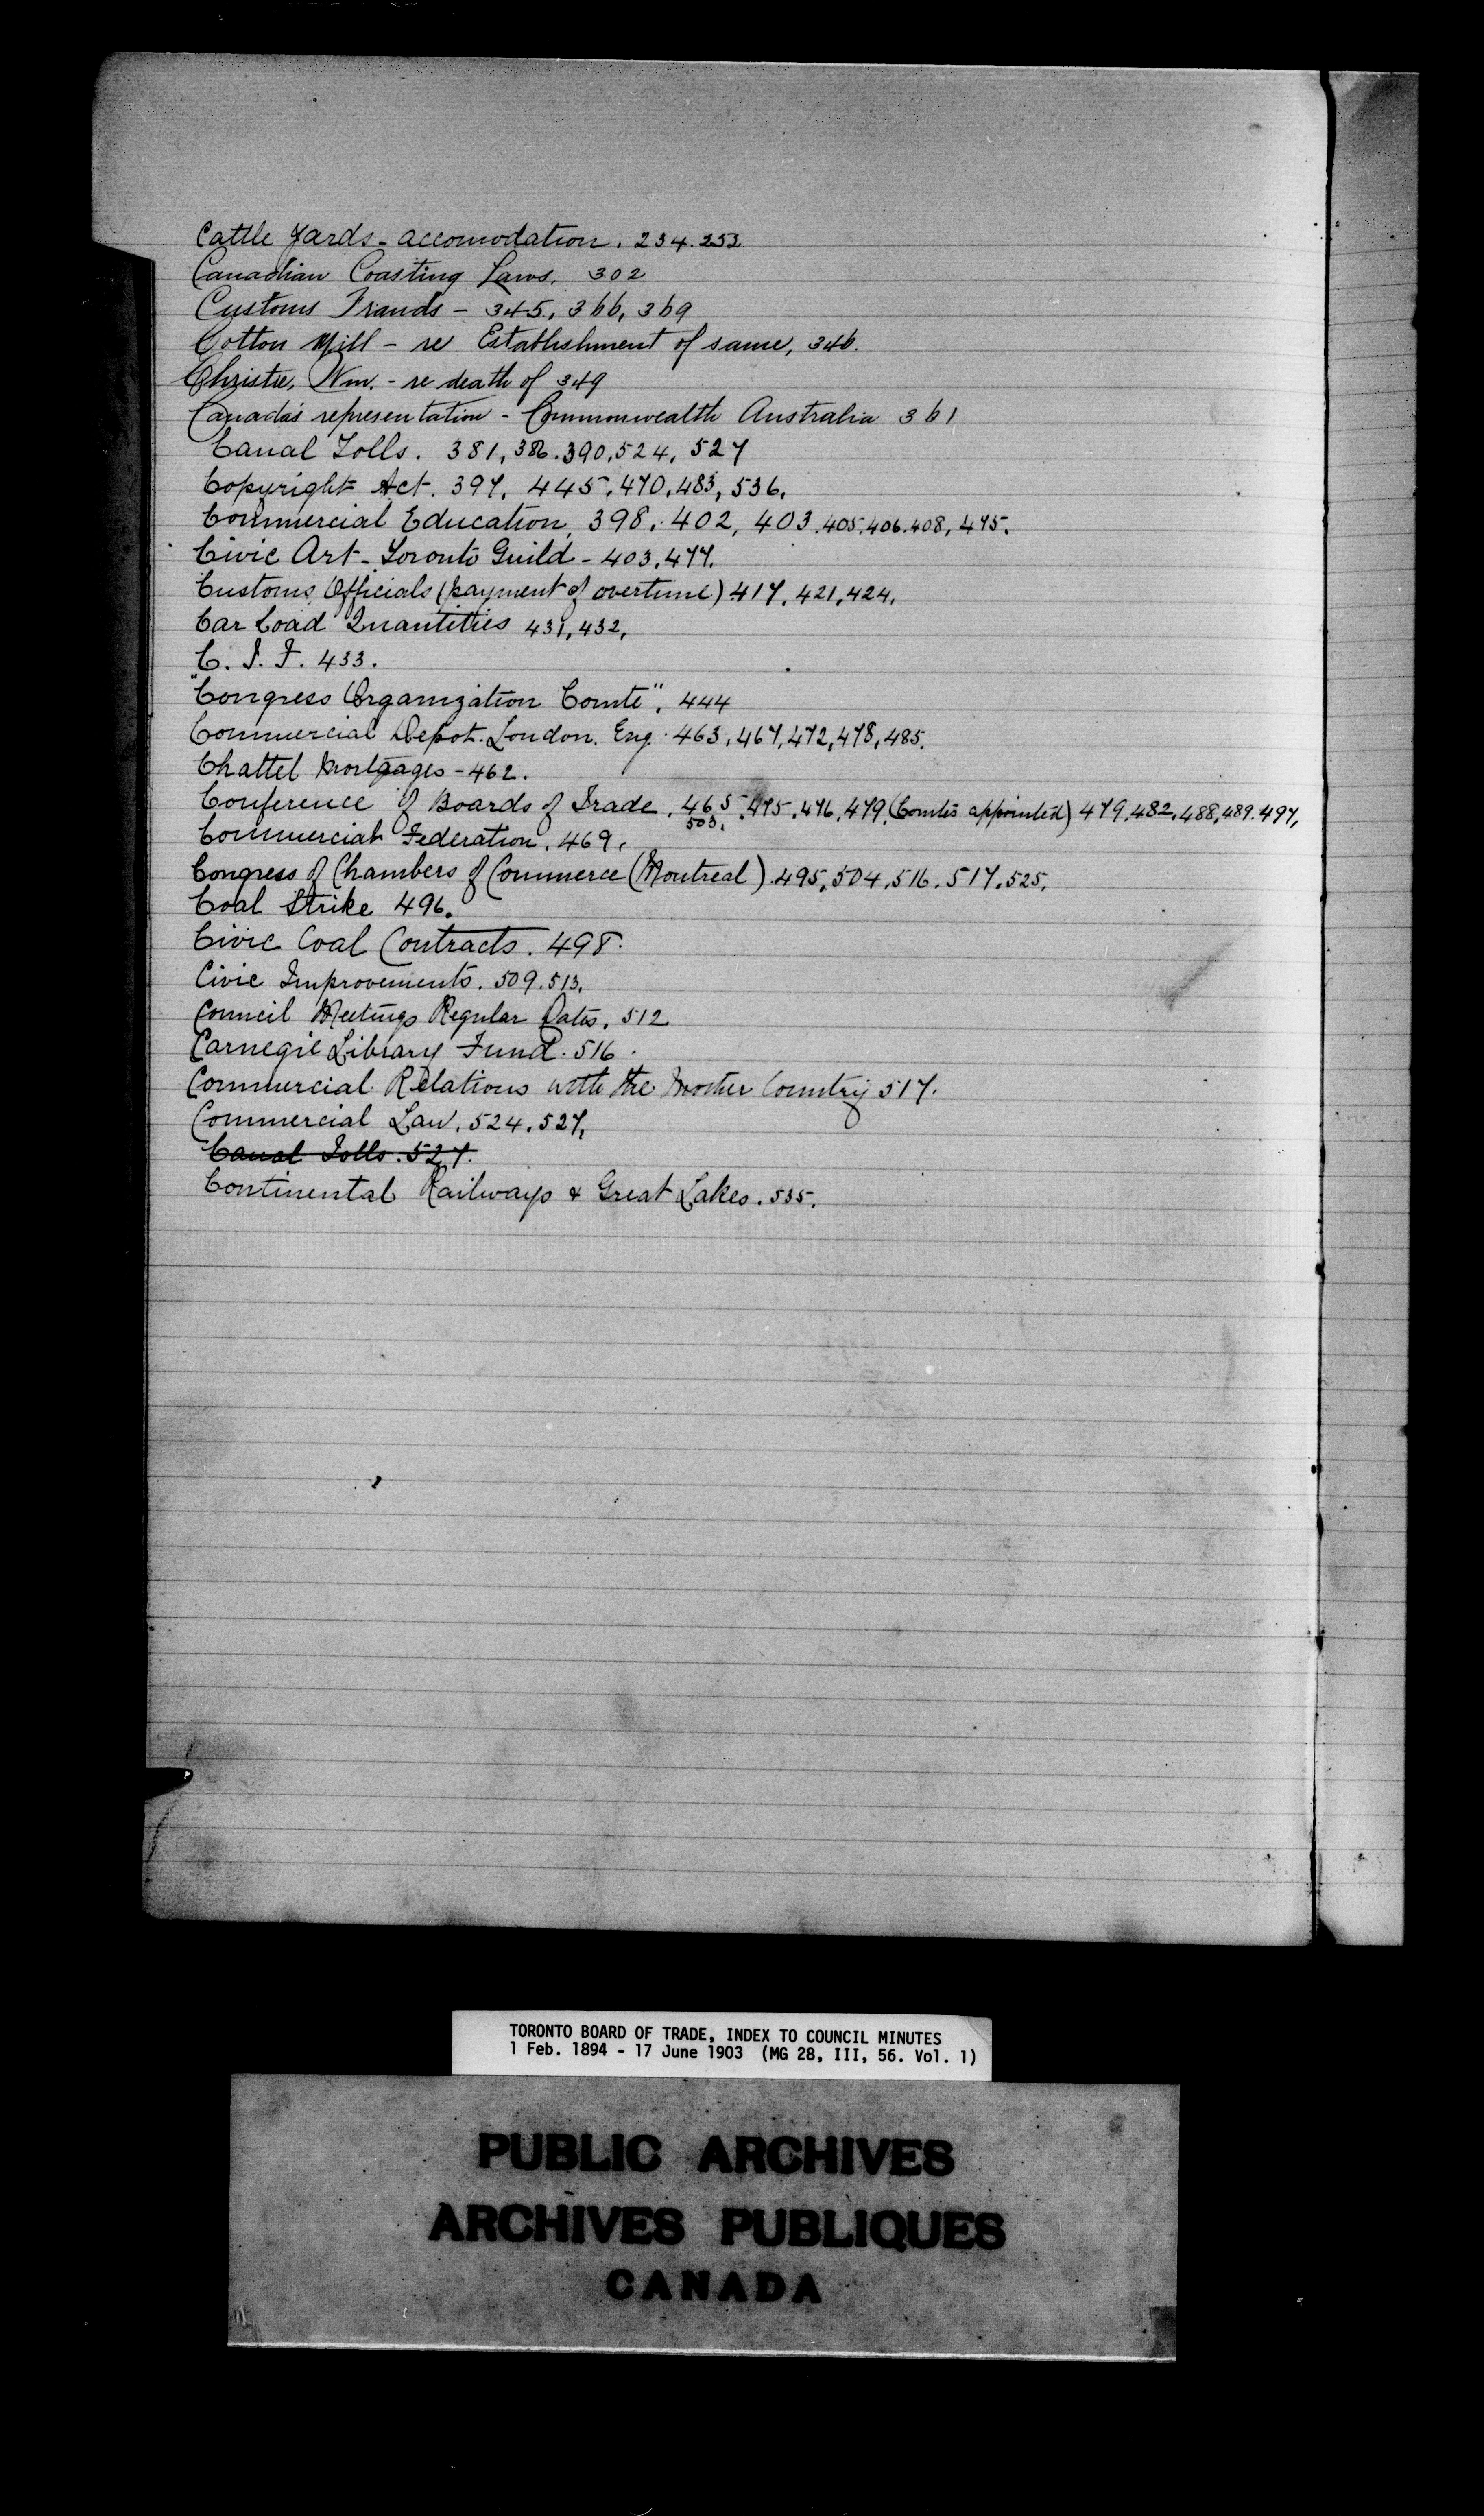 Cattle Yards - accomodation. 234. 253
Canadian Coasting Laws. 302
Customs Frauds - 345, 366, 369
Cotton Mill - re Establishment of same, 346.
Christie, Wm. - re death of 349
Canada's representation - Commonwealth Australia 361
Canal Tolls. 381, 386. 390, 524, 527
Copyright Act. 397, 445, 470, 483, 536,
Commercial Education, 398, 402, 403, 405. 406. 408, 475.
Civic Art - Toronto Guild - 403, 477.
Customs Officials (payment of overtime) 417, 421, 424,
Car Load Quantities 431, 432,
C. I. F. 433.
"Congress Organization Comte", 444
Commercial Depot. London. Eng. 463, 467, 472, 478, 485.
Chattel Mortgages - 462.
Conference of Boards of Trade. 465, 475, 476, 479, (Comtes appointed) 479, 482, 488, 489. 497,
503,
Commercial Federation. 469,
Congress of Chambers of Commerce (Montreal). 495, 504, 516, 517, 525,
Coal Strike 496.
Civic Coal Contracts. 498.
Civic Improvements. 509. 513,
Council Meetings Regular Dates. 512
Carnegie Library Fund. 516.
Commercial Relations with the Mother Country 517.
Commercial Law, 524. 527,
Canal Tolls. 527.
Continental Railways & Great Lakes. 535.
TORONTO BOARD OF TRADE, INDEX TO COUNCIL MINUTES
1 Feb. 1894 - 17 June 1903 (MG 28, III, 56. Vol. 1)
PUBLIC ARCHIVES
ARCHIVES PUBLIQUES
CANADA